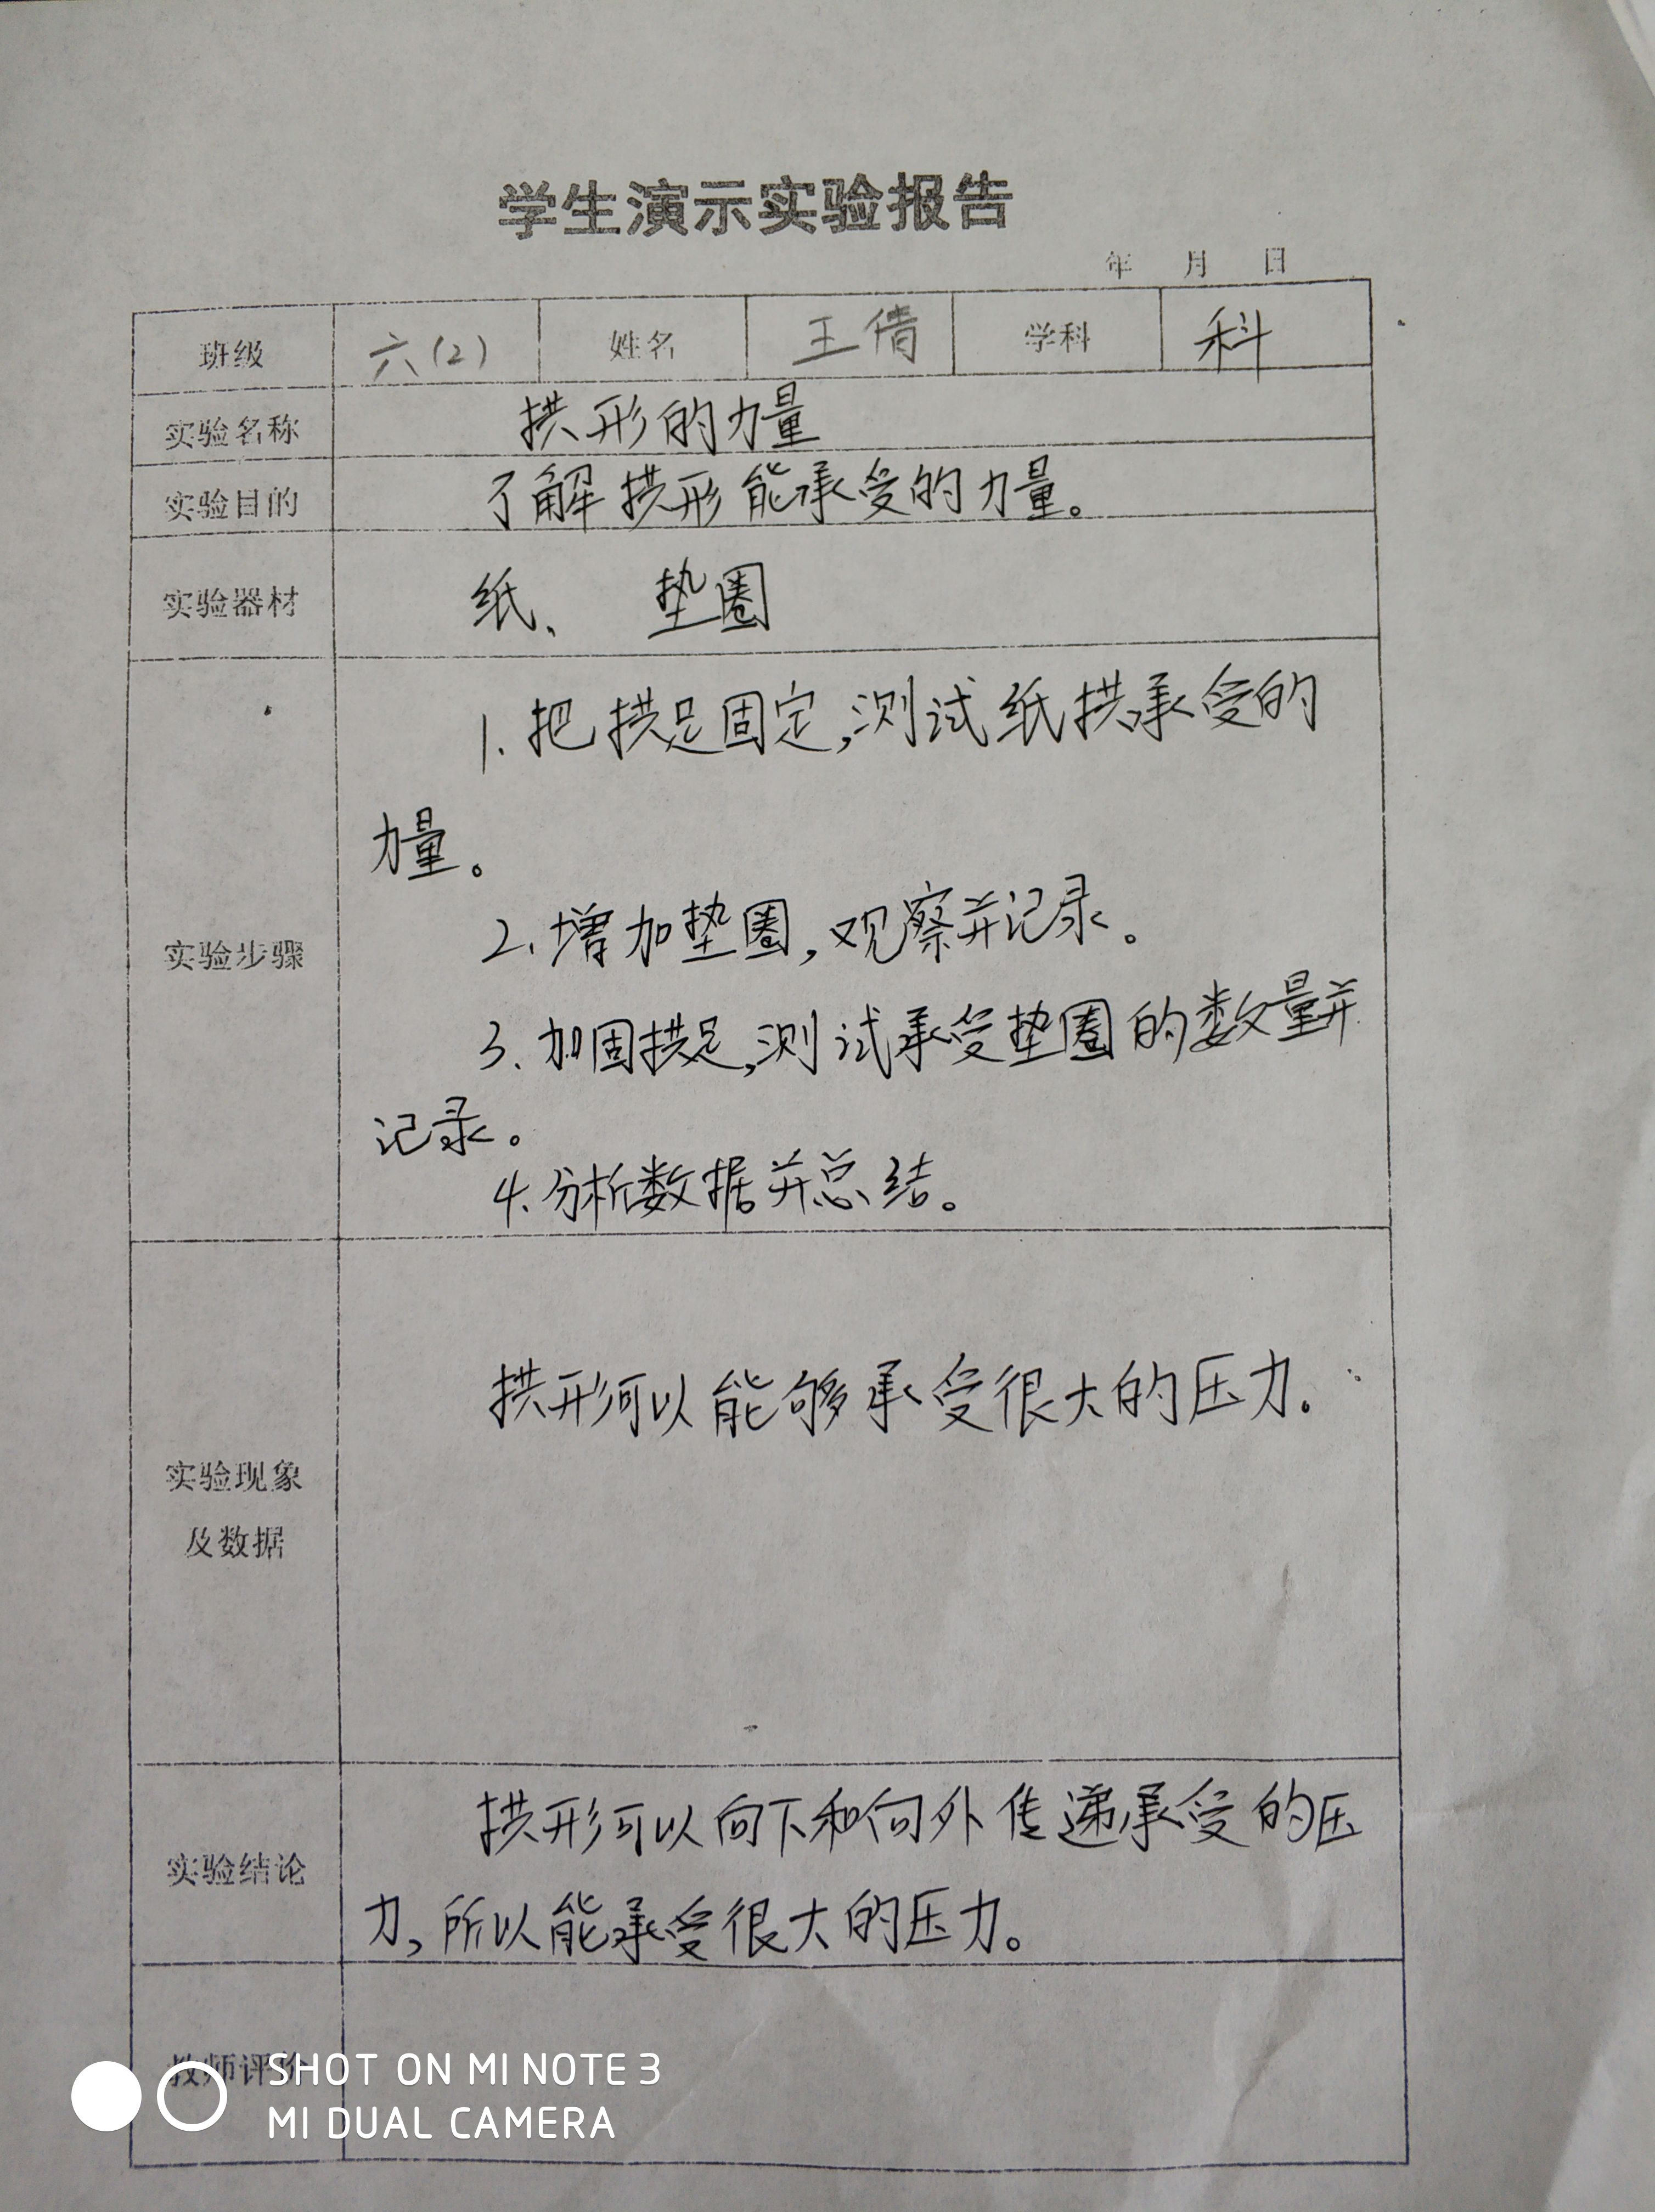 学生演示实验报告
年 月 日
班级 六(2) 姓名 王倩 学科 科
实验名称 拱形的力量
实验目的 了解拱形能承受的力量。
实验器材 纸、 垫圈
实验步骤
1.把拱足固定,测试纸拱承受的
力量。
2、增加垫圈,观察并记录。
3、加固拱足,测试承受垫圈的数量并
记录。
4.分析数据并总结。
实验现象
及数据
拱形可以能够承受很大的压力.
实验结论
拱形可以向下和向外传递承受的压
力,所以能承受很大的压力。
教师评价
SHOT ON MI NOTE 3
MI DUAL CAMERA